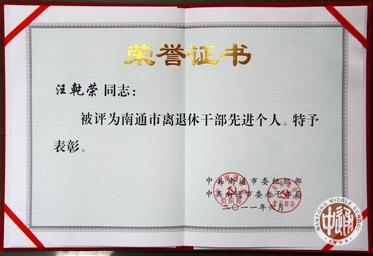 荣誉证书
汪乾荣同志：
被评为南通市离退休干部先进个人。特予
表彰。
中共南通市委组织部
中共南通市委老干部局
二〇一一年六月
NANTONG MIDDLE SCHOOL